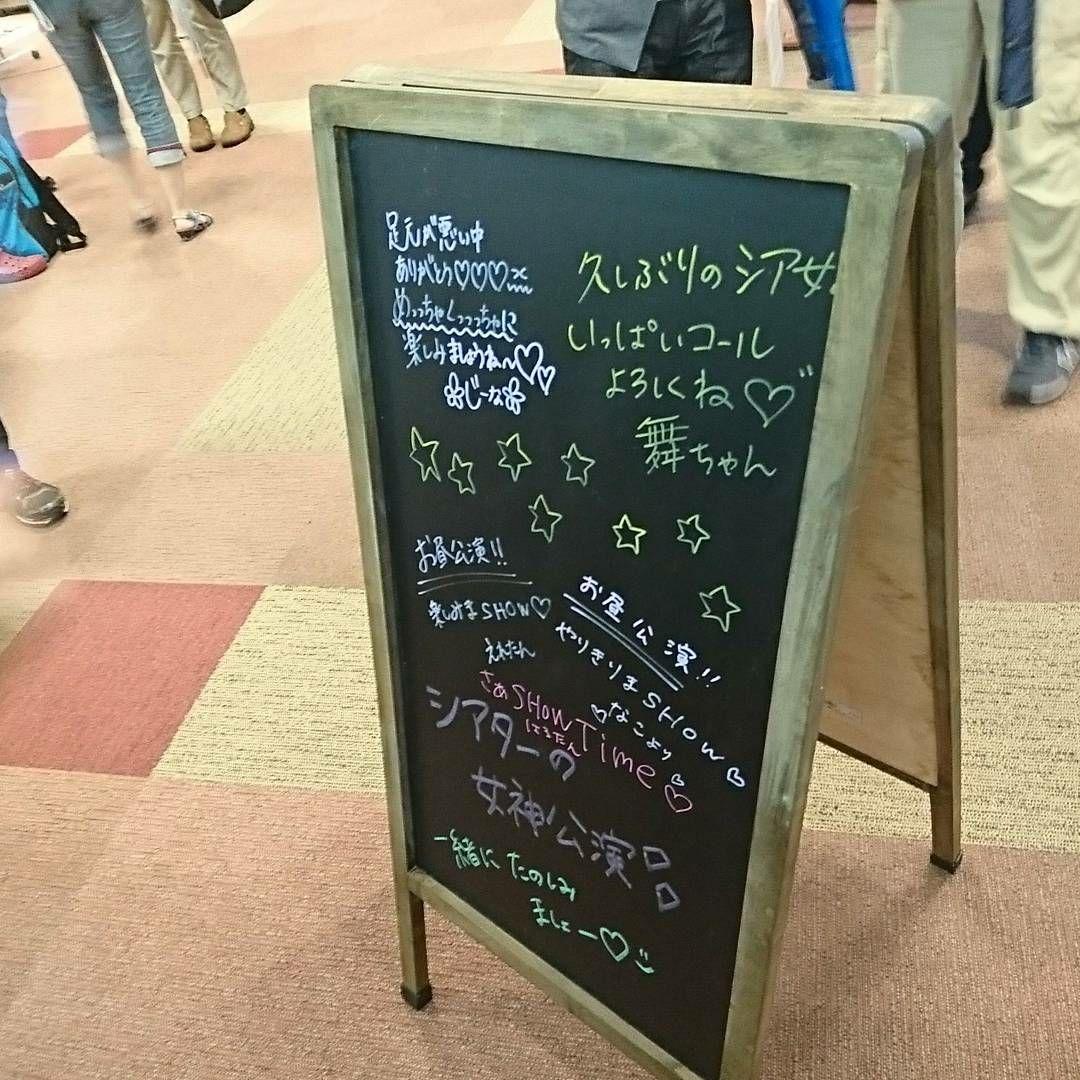 足元が悪い中
ありがとう♡♡♡
めっっちゃくっっっちゃに
楽しみましょうね〜♡♡
じーな
久しぶりのシア女
いっぱいコール
よろしくね♡
舞ちゃん
お昼公演!!
楽しみまSHOW♡
えれたん
お昼公演!!
やりきりまSHOW♡
♡なこより
さぁSHOWTime♡
はるたん
シアターの
女神公演!!
一緒にたのしみ
ましょー♡